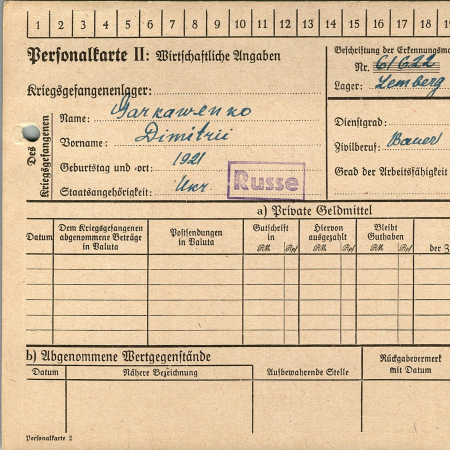 1 2 3 4 5 6 7 8 9 10 11 12 13 14 15 16 17 18 19
Personalkarte II: Wirtschaftliche Angaben
Beschriftung der Erkennungsma
Nr. 61622
Lager: Lemberg
Kriegsgefangenenlager:
Des Kriegsgefangenen
Name: Garkawenko
Vorname: Dimitrii
Geburtstag und -ort: 1921
Staatsangehörigkeit: Ukr. Russe
Dienstgrad:
Zivilberuf: Bauer
Grad der Arbeitsfähigkeit
a) Private Geldmittel
Datum
Dem Kriegsgefangenen abgenommene Beträge in Valuta
Postsendungen in Valuta
Gutschrift in
RM Rpf
Hiervon ausgezahlt
RM Rpf
Bleibt Guthaben
RM Rpf
der Z
b) Abgenommene Wertgegenstände
Datum
Nähere Bezeichnung
Aufbewahrende Stelle
Rückgabevermerk mit Datum
Personalkarte 2